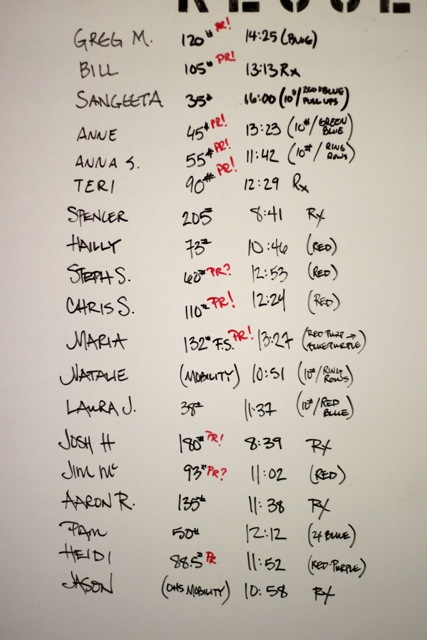 GREG M. 120# PR! 14:25 (BLUE)
BILL 105# PR! 13:13 Rx
SANGEETA 35# 16:00 (10#/RED+BLUE PULL UPS)
ANNE 45# PR! 13:23 (10#/GREEN BLUE)
ANNA S. 55# PR! 11:42 (10#/RING ROWS)
TERI 90# PR! 12:29 Rx
SPENCER 205# 8:41 Rx
HAILLY 73# 10:46 (RED)
STEPH S. 60# PR? 12:53 (RED)
CHRIS S. 110# PR! 12:24 (RED)
MARIA 132# F.S. PR! 13:27 (RED PURP →
NATALIE (MOBILITY) 10:51 (10#/RING ROWS)
LAURA J. 38# 11:37 (10#/RED BLUE)
JOSH H 180# PR! 8:39 Rx
JIM Mc 93# PR? 11:02 (RED)
AARON R. 135# 11:38 Rx
PAM 50# 12:12 (2x BLUE)
HEIDI 88.5# PR 11:52 (RED-PURPLE)
JASON (OHS MOBILITY) 10:58 Rx